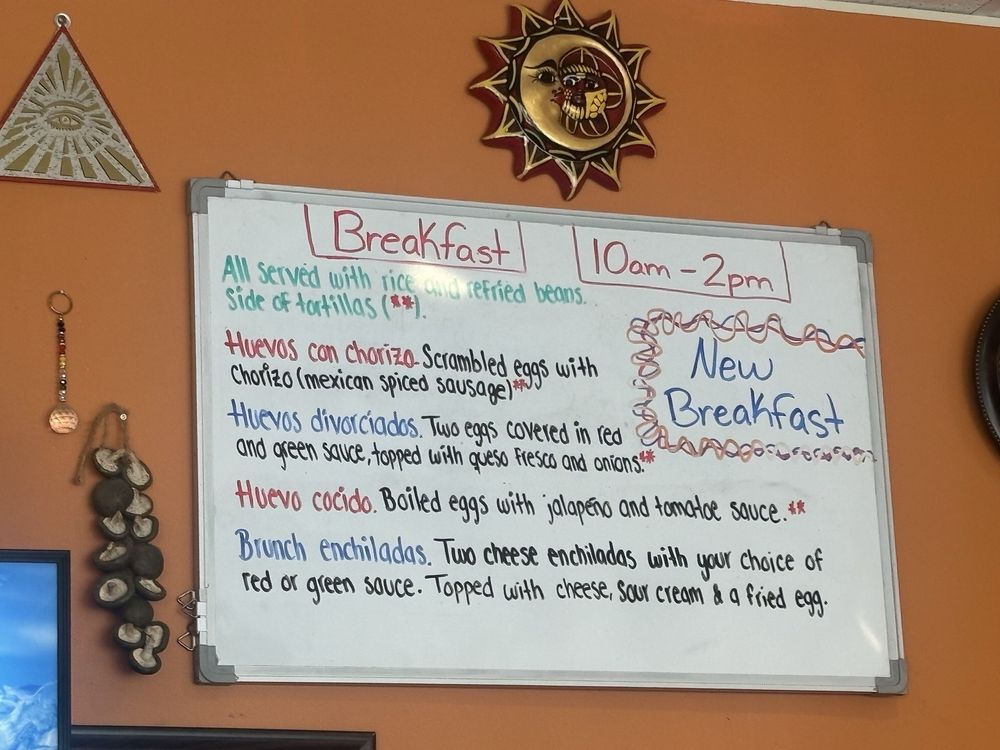 Breakfast
10am - 2pm
All served with rice and refried beans.
Side of tortillas (**).
New
Breakfast
Huevos con chorizo. Scrambled eggs with
Chorizo (mexican spiced sausage)**
Huevos divorciados. Two eggs covered in red
and green sauce, topped with queso fresco and onions.**
Huevo cocido. Boiled eggs with jalapeño and tomatoe sauce.**
Brunch enchiladas. Two cheese enchiladas with your choice of
red or green sauce. Topped with cheese, sour cream & a fried egg.